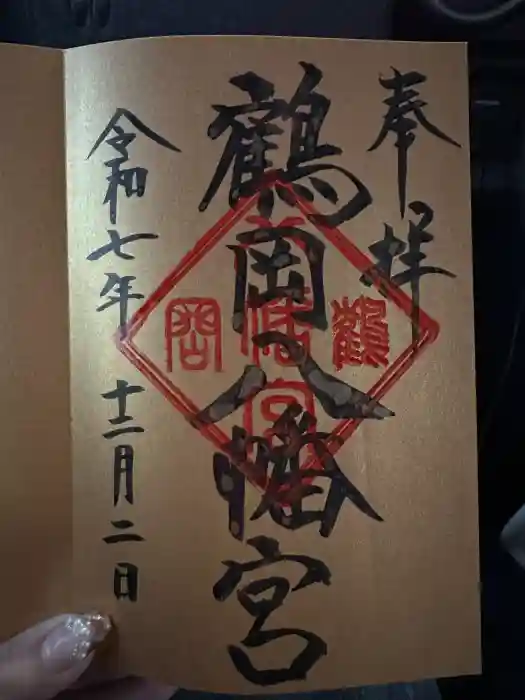 奉拝
鶴岡八幡宮
令和七年 十二月二日